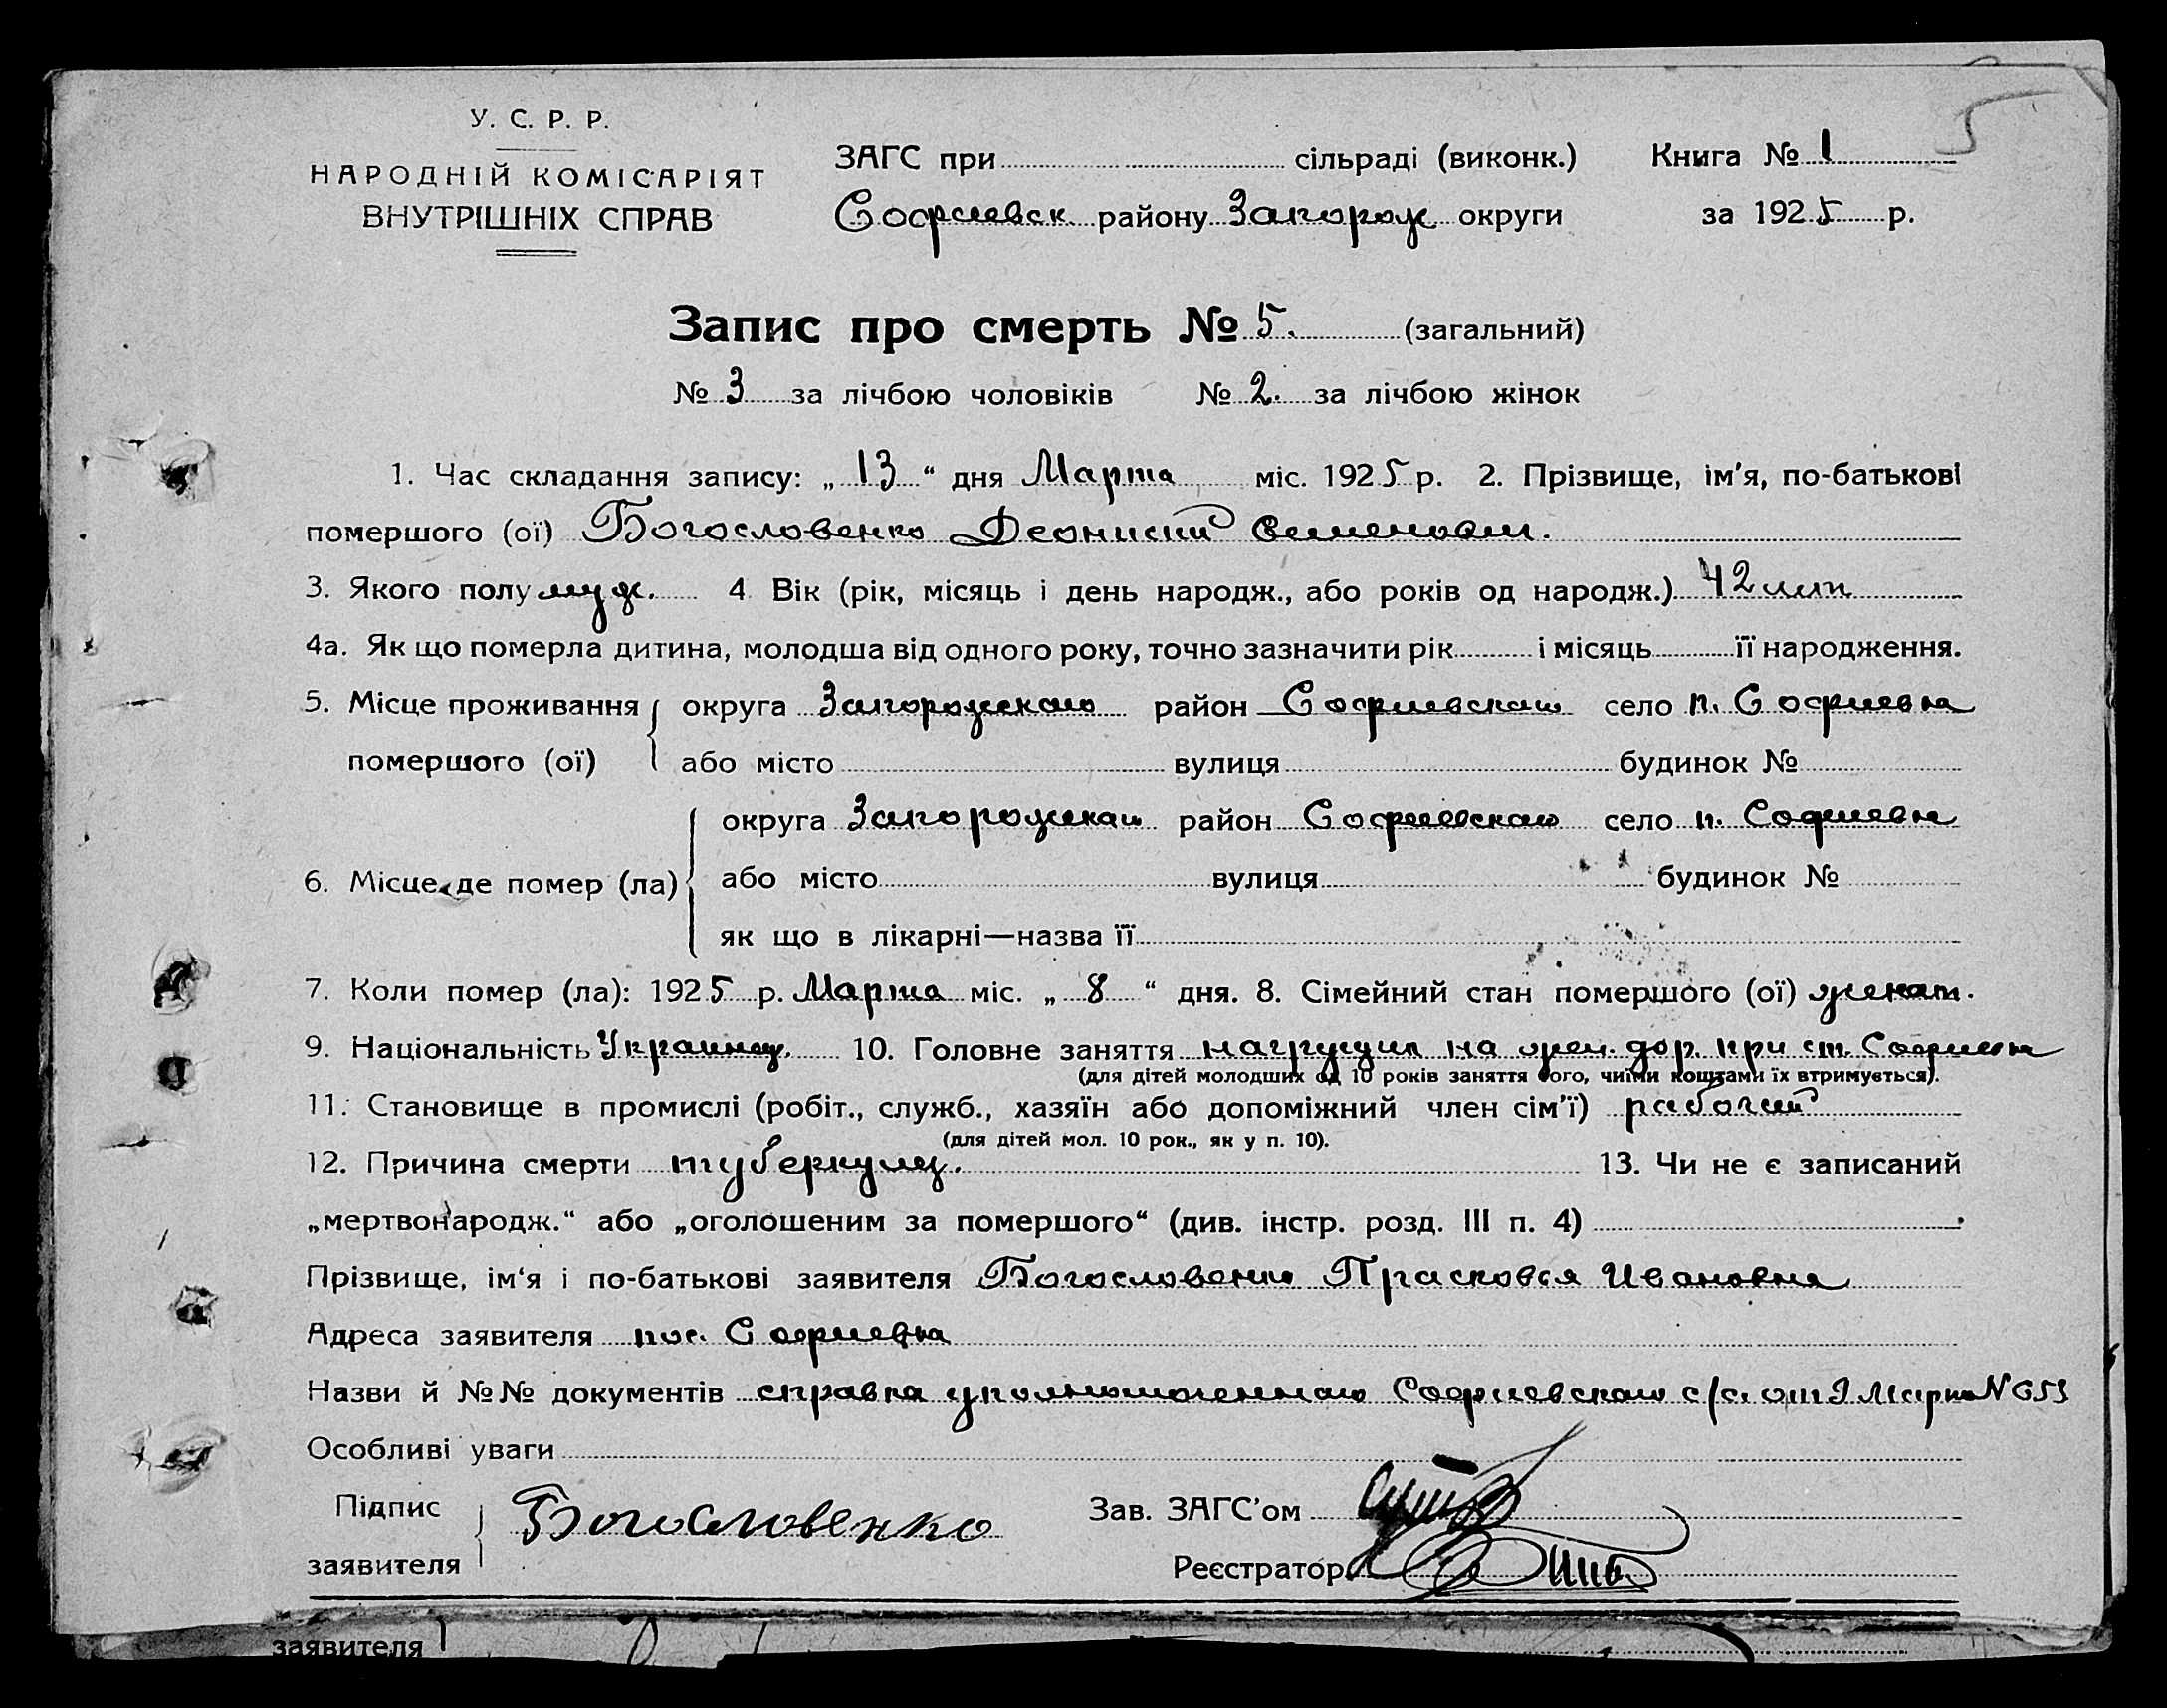 5
У. С. Р. Р.
НАРОДНІЙ КОМІСАРІЯТ
ВНУТРІШНІХ СПРАВ
ЗАГС при сільраді (виконк.) Книга № 1
Софиевск. району Запорож округи за 1925 р.
Запис про смерть № 5. (загальний)
№ 3 за лічбою чоловіків № 2. за лічбою жінок
1. Час складання запису: „ 13 “ дня Марта міс. 1925 р. 2. Прізвище, ім'я, по-батькові
помершого (ої) Богословенко Деонисий Семенович.
3. Якого полу муж. 4 Вік (рік, місяць і день народж., або років од народж.) 42 лет
4а. Як що померла дитина, молодша від одного року, точно зазначити рік і місяць її народження.
5. Місце проживання округа Запорожскаго район Софиевскаго село п. Софиевка
помершого (ої) або місто вулиця будинок №
округа Запорожскаго район Софиевскаго село п. Софиевка
6. Місце де помер (ла) або місто вулиця будинок №
як що в лікарні—назва її
7. Коли помер (ла): 1925 р. Марта міс. „ 8 “ дня. 8. Сімейний стан помершого (ої) женат.
9. Національність Украинец. 10. Головне заняття на дор. при ст. Софиевка
(для дітей молодших од 10 років заняття того, чиїми коштами їх втримується).
11. Становище в промислі (робіт., служб., хазяїн або допоміжний член сім'ї) рабочий
(для дітей мол. 10 рок., як у п. 10).
12. Причина смерти туберкулез. 13. Чи не є записаний
„мертвонародж.“ або „оголошеним за помершого“ (див. інстр. розд. III п. 4)
Прізвище, ім'я і по-батькові заявителя Богословенко Прасковья Ивановна
Адреса заявителя пос. Софиевка
Назви й №№ документів справка уполномоченнаго Софиевскаго с/с. от 9 Марта N 653
Особливі уваги
Підпис Богословенко Зав. ЗАГС'ом
заявителя Реєстратор
заявителя